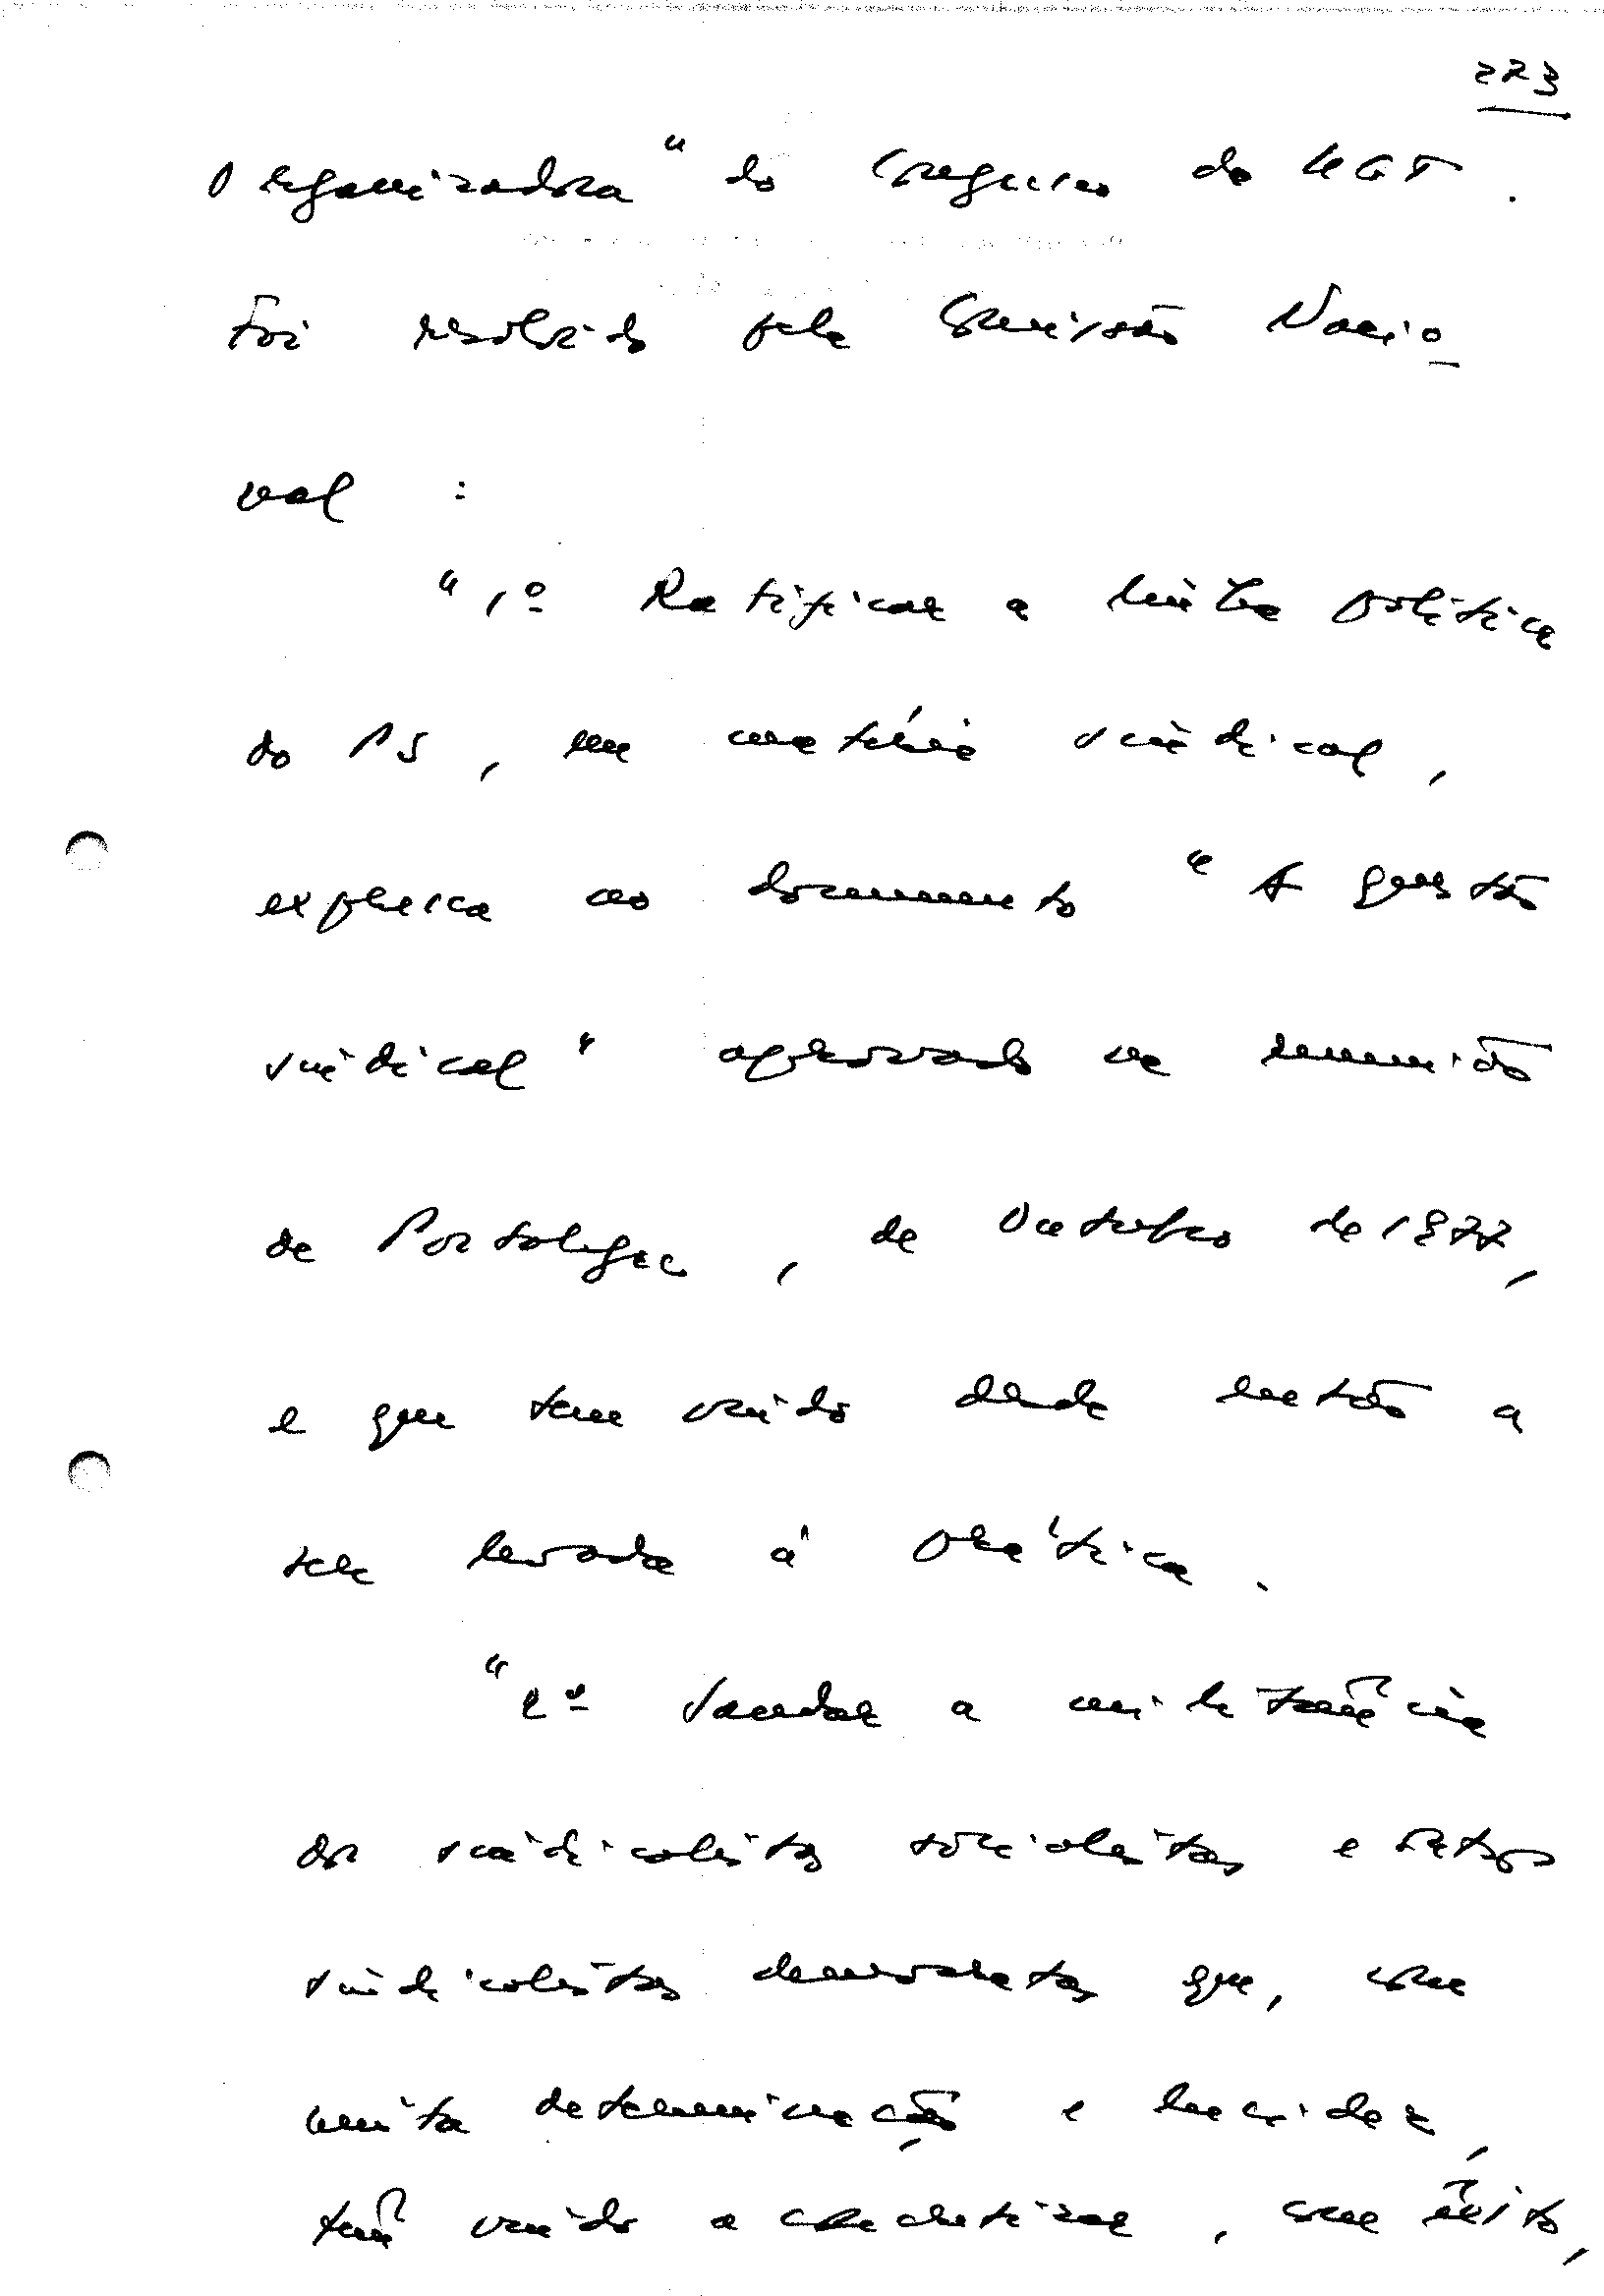 223
Organizadora" do Congresso da UGT.
Foi resolvido pela Comissão Nacio
nal :
"1º Ratificar a linha política
do PS, em matéria sindical,
expressa no documento "A questão
sindical" aprovado na reunião
de Portalegre, de Outubro de 1977,
e que tem vindo desde então a
ser levada à prática.
"2º Saudar a militância
dos sindicalistas socialistas e outros
sindicalistas democratas que, com
muita determinação e lucidez,
têm vindo a concretizar, com êxito,